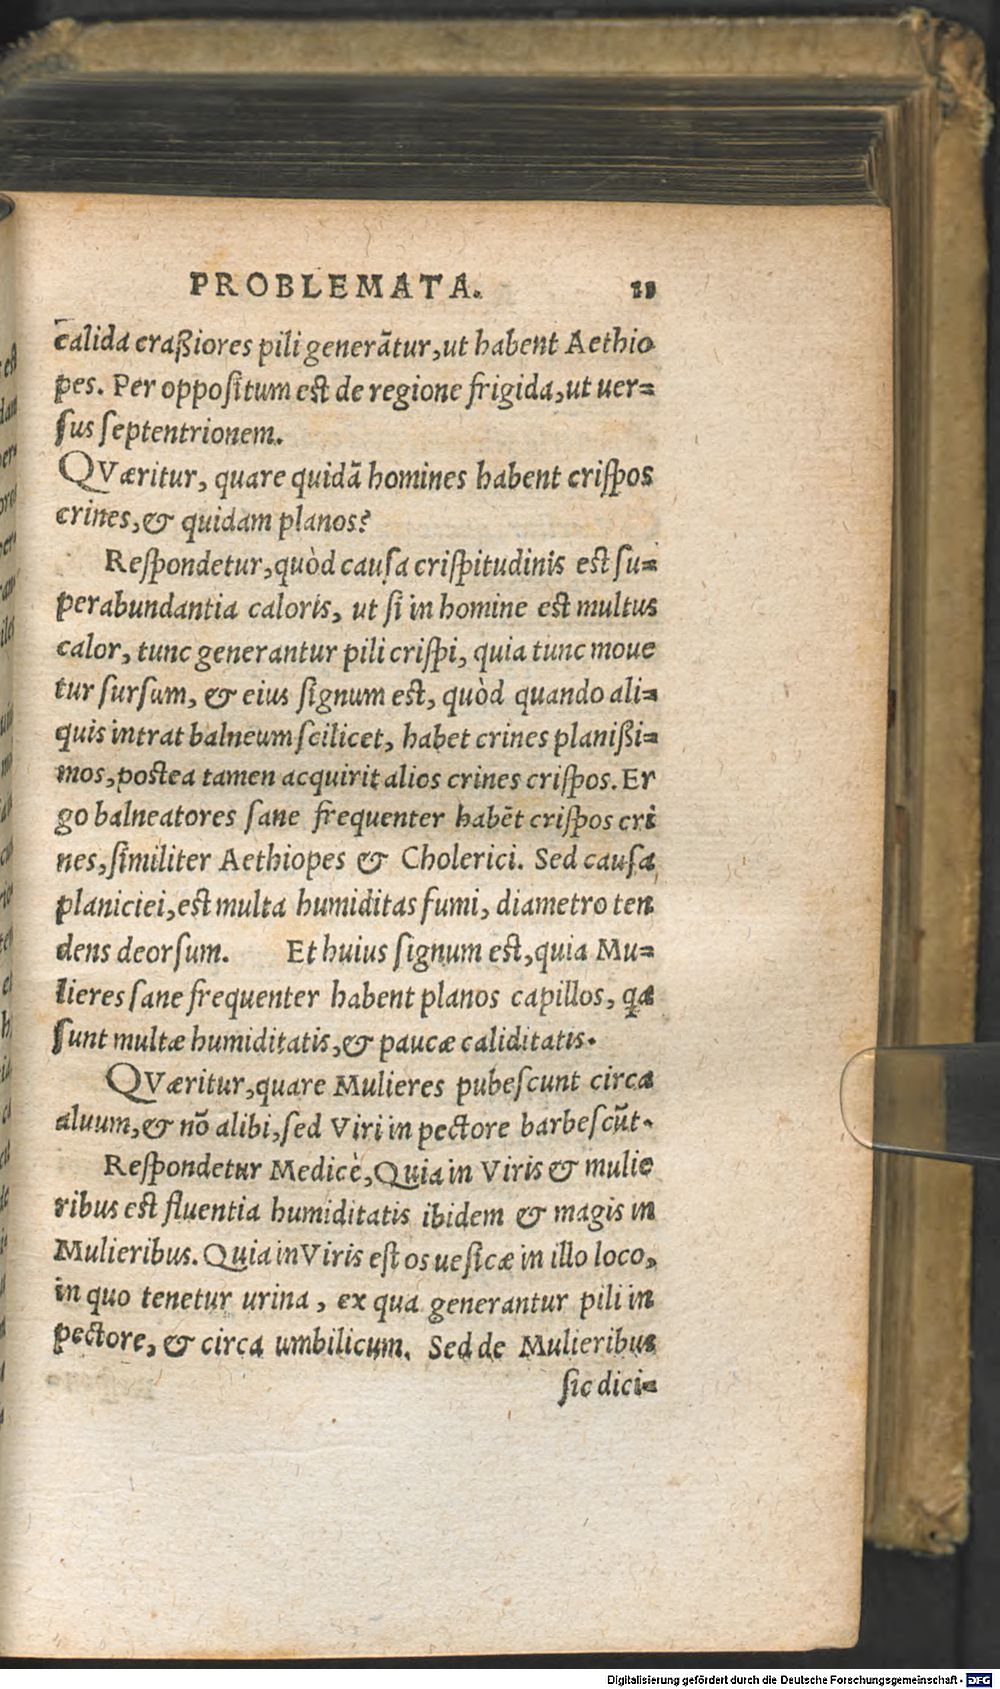 PROBLEMATA. 11
calida craßiores pili generãtur, ut habent Aethio
pes. Per oppoſitum est de regione frigida, ut uer=
ſus ſeptentrionem.
QVæritur, quare quidã homines habent criſpos
crines, & quidam planos?
Reſpondetur, quòd cauſa criſpitudinis est ſu=
perabundantia caloris, ut ſi in homine est multus
calor, tunc generantur pili criſpi, quia tunc moue
tur ſurſum, & eius ſignum est, quòd quando ali=
quis intrat balneum ſcilicet, habet crines planißi=
mos, postea tamen acquirit alios crines criſpos. Er
go balneatores ſane frequenter habẽt criſpos cri
nes, ſimiliter Aethiopes & Cholerici. Sed cauſa
planiciei, est multa humiditas fumi, diametro ten
dens deorſum. Et huius ſignum est, quia Mu=
lieres ſane frequenter habent planos capillos, qa
ſunt multæ humiditatis, & paucæ caliditatis.
QVæritur, quare Mulieres pubeſcunt circa
aluum, & nõ alibi, ſed Viri in pectore barbeſcũt.
Reſpondetur Medicè, Quia in Viris & mulie
ribus est fluentia humiditatis ibidem & magis in
Mulieribus. Quia in Viris eſt os ueſicæ in illo loco,
in quo tenetur urina, ex qua generantur pili in
pectore, & circa umbilicum. Sed de Mulieribus
ſic dici=
Digitalisierung gefördert durch die Deutsche Forschungsgemeinschaft - DFG